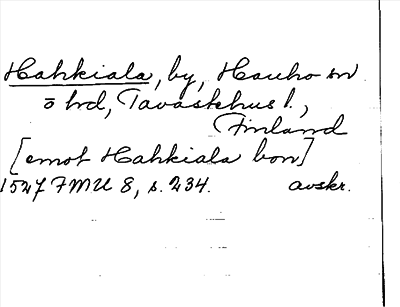 Hahkiala, by, Hauho sn
o hd, Tavastehus l.,
Finland
[emot Hahkiala bon]
1527 FMU 8, s. 234. avskr.